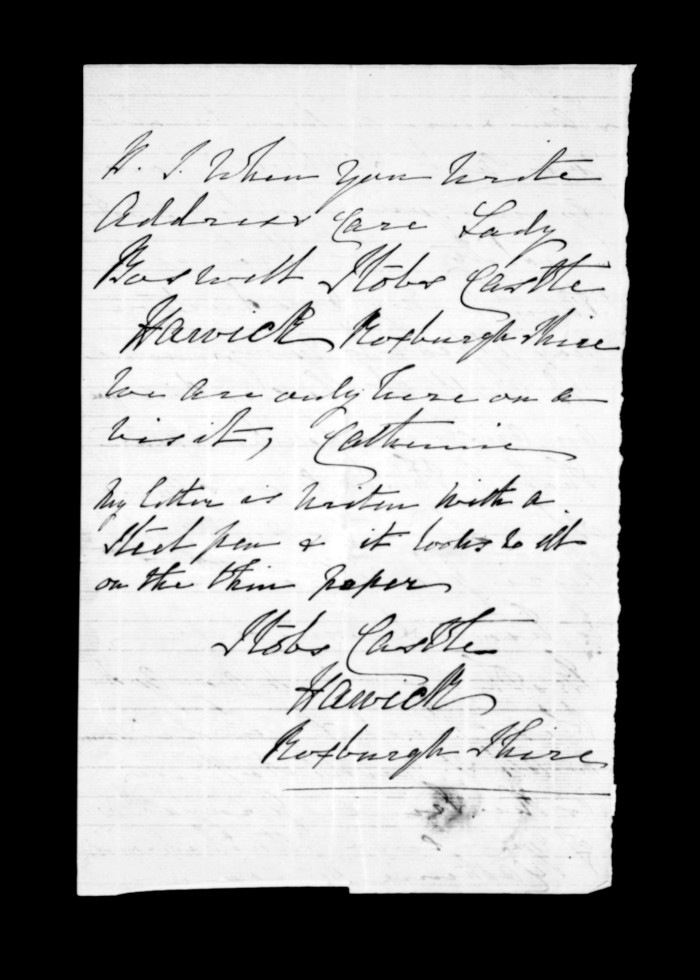 P. S. When you write
Address Care Lady
Boswell Stobs Castle
Hawick Roxburgh Shire
We are only here on a
visit, Catherine
My letter is writen with a
Steel pen & it looks so ill
on the thin paper
Stobs Castle
Hawick
Roxburgh Shire